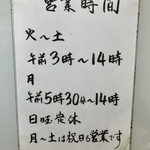 営業時間
火～土
午前3時～14時
月
午前5時30分～14時
日旺定休
月～土は祝日も営業です